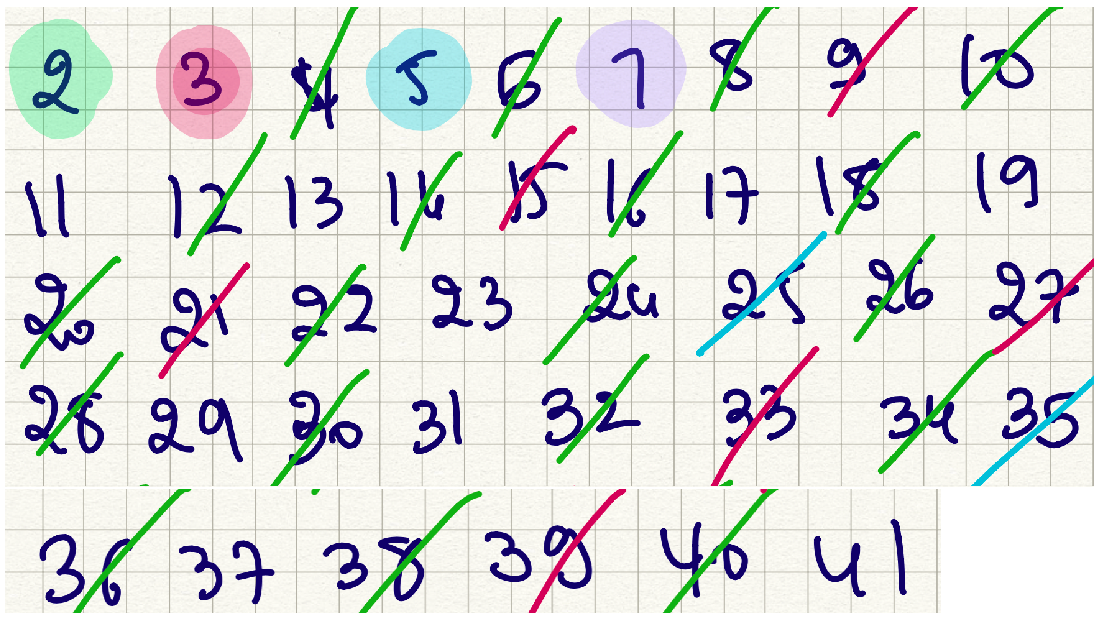 2 3 4 5 6 7 8 9 10
11 12 13 14 15 16 17 18 19
20 21 22 23 24 25 26 27
28 29 30 31 32 33 34 35
36 37 38 39 40 41